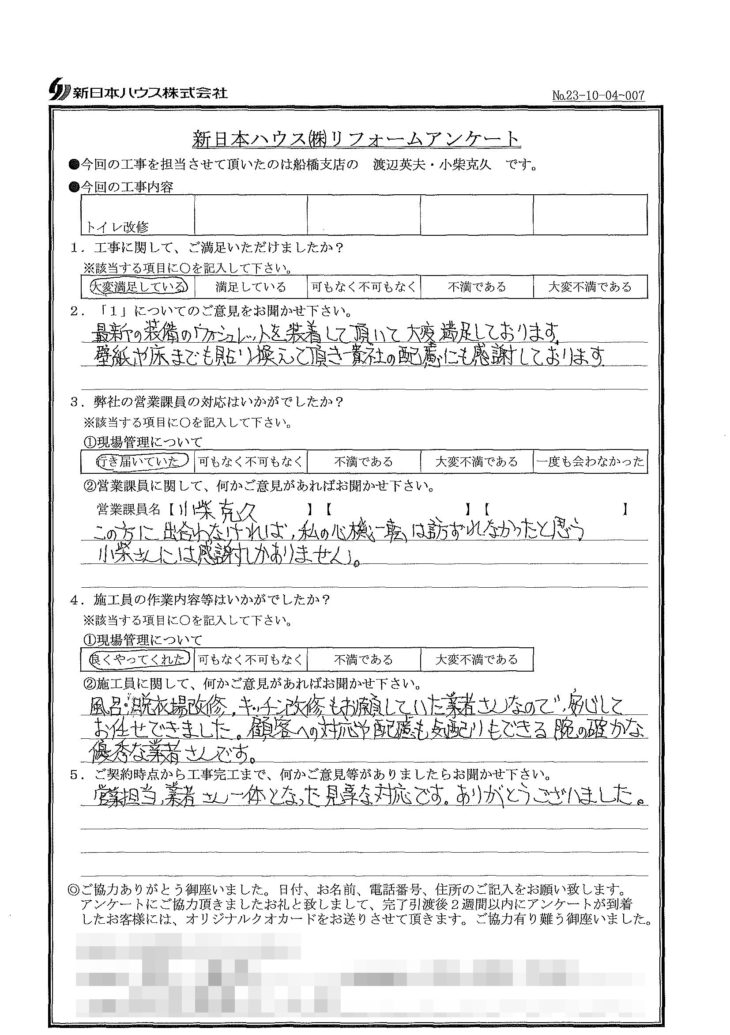 新日本ハウス株式会社
No.23-10-04-007
新日本ハウス㈱リフォームアンケート
●今回の工事を担当させて頂いたのは船橋支店の 渡辺英夫・小柴克久 です。
●今回の工事内容
トイレ改修
1．工事に関して、ご満足いただけましたか？
※該当する項目に○を記入して下さい。
大変満足している 満足している 可もなく不可もなく 不満である 大変不満である
2．「1」についてのご意見をお聞かせ下さい。
最新の装備のウォシュレットを装着して頂いて大変満足しております。
壁紙や床までも貼り換えて頂き貴社の配慮にも感謝しております
3．弊社の営業課員の対応はいかがでしたか？
※該当する項目に○を記入して下さい。
①現場管理について
行き届いていた 可もなく不可もなく 不満である 大変不満である 一度も会わなかった
②営業課員に関して、何かご意見があればお聞かせ下さい。
営業課員名【小柴 克久 】【 】【 】
この方に出合わなければ、私の心機一転は訪ずれなかったと思う
小柴さんには感謝しかありません。
4．施工員の作業内容等はいかがでしたか？
※該当する項目に○を記入して下さい。
①現場管理について
良くやってくれた 可もなく不可もなく 不満である 大変不満である
②施工員に関して、何かご意見があればお聞かせ下さい。
風呂・脱衣場改修、キッチン改修もお願していた業者さんなので、安心して
お任せできました。顧客への対応や配慮も気配りもできる腕の確かな
優秀な業者さんです。
5．ご契約時点から工事完工まで、何かご意見等がありましたらお聞かせ下さい。
営業担当、業者さん一体となった見事な対応です。ありがとうございました。
◎ご協力ありがとう御座いました。日付、お名前、電話番号、住所のご記入をお願い致します。
アンケートにご協力頂きましたお礼と致しまして、完了引渡後２週間以内にアンケートが到着
したお客様には、オリジナルクオカードをお送りさせて頂きます。ご協力有り難う御座いました。